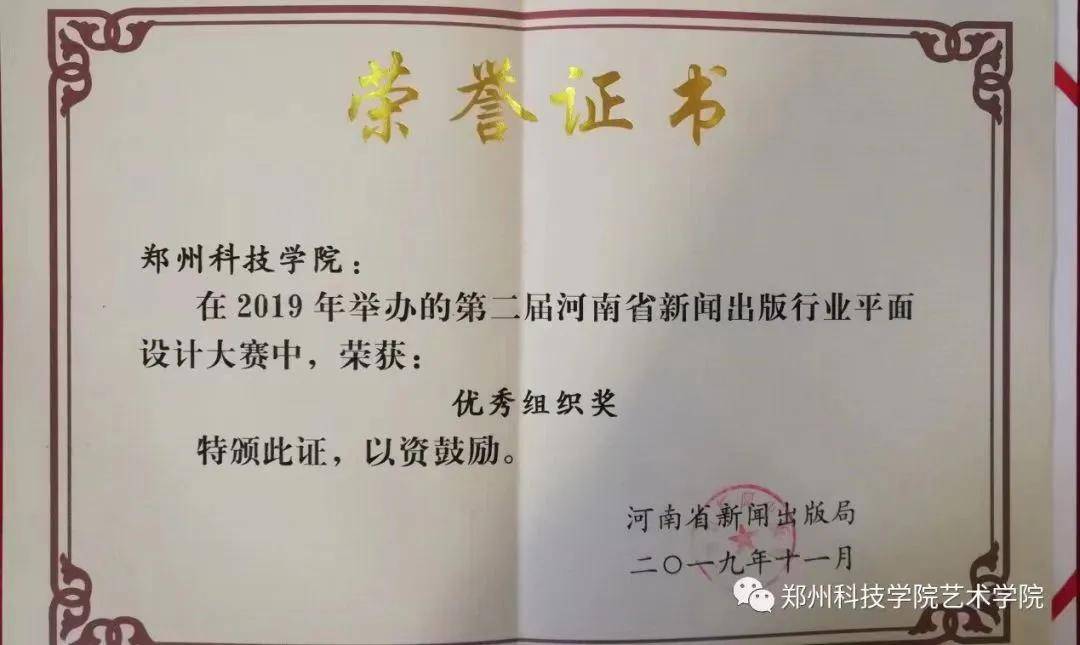 荣誉证书
郑州科技学院：
在2019年举办的第二届河南省新闻出版行业平面
设计大赛中，荣获：
优秀组织奖
特颁此证，以资鼓励。
河南省新闻出版局
二〇一九年十一月
郑州科技学院艺术学院